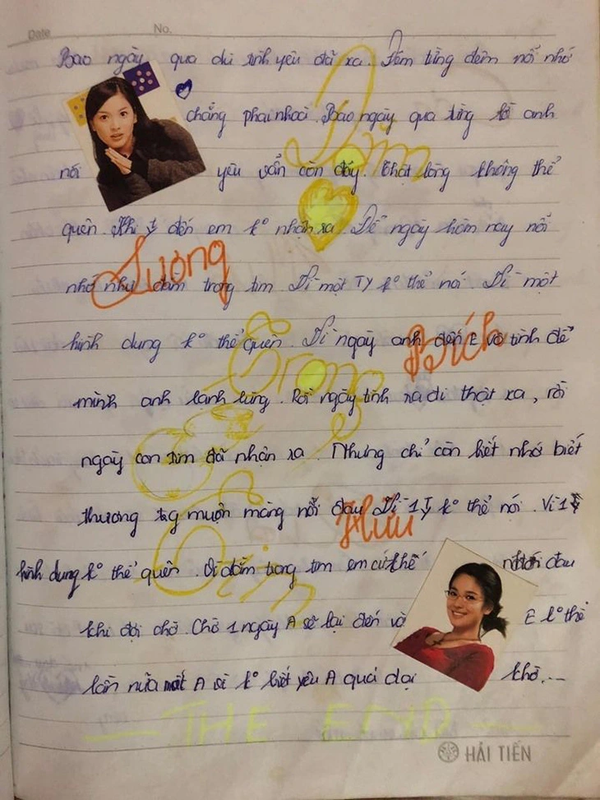 Date No.
Bao ngày qua dù tình yêu đã xa. Đêm từng đêm nỗi nhớ
chẳng phai nhoà. Bao ngày qua từng lời anh
nói yêu vẫn còn đây thật lòng không thể
quên. Khi đến em ko nhận ra. Để ngày hôm nay nỗi
nhớ như đâm trong tim Vì một TY ko thể nói. Vì một
hình dung ko thể quên Vì ngày anh đến E vô tình để
mình anh lạnh lùng. Rồi ngày tình ra đi thật xa, rồi
ngày con tim đã nhận ra. Nhưng chỉ còn biết nhớ biết
thương tỵg muộn màng nỗi đau Vì 1 TY ko thể nói. Vì 1
hình dung ko thể quên. trong tim em cứ thế nhói đau
khi đợi chờ. Chờ 1 ngày A sẽ lại đến và E ko thể
lần nữa mất A vì ko biết yêu A quá dại khờ...
Tim
Sương
Trong
Bích
Hữu
THE END
HẢI TIẾN